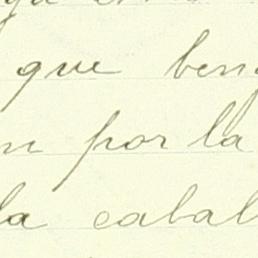 que beng
n por la
la cabal